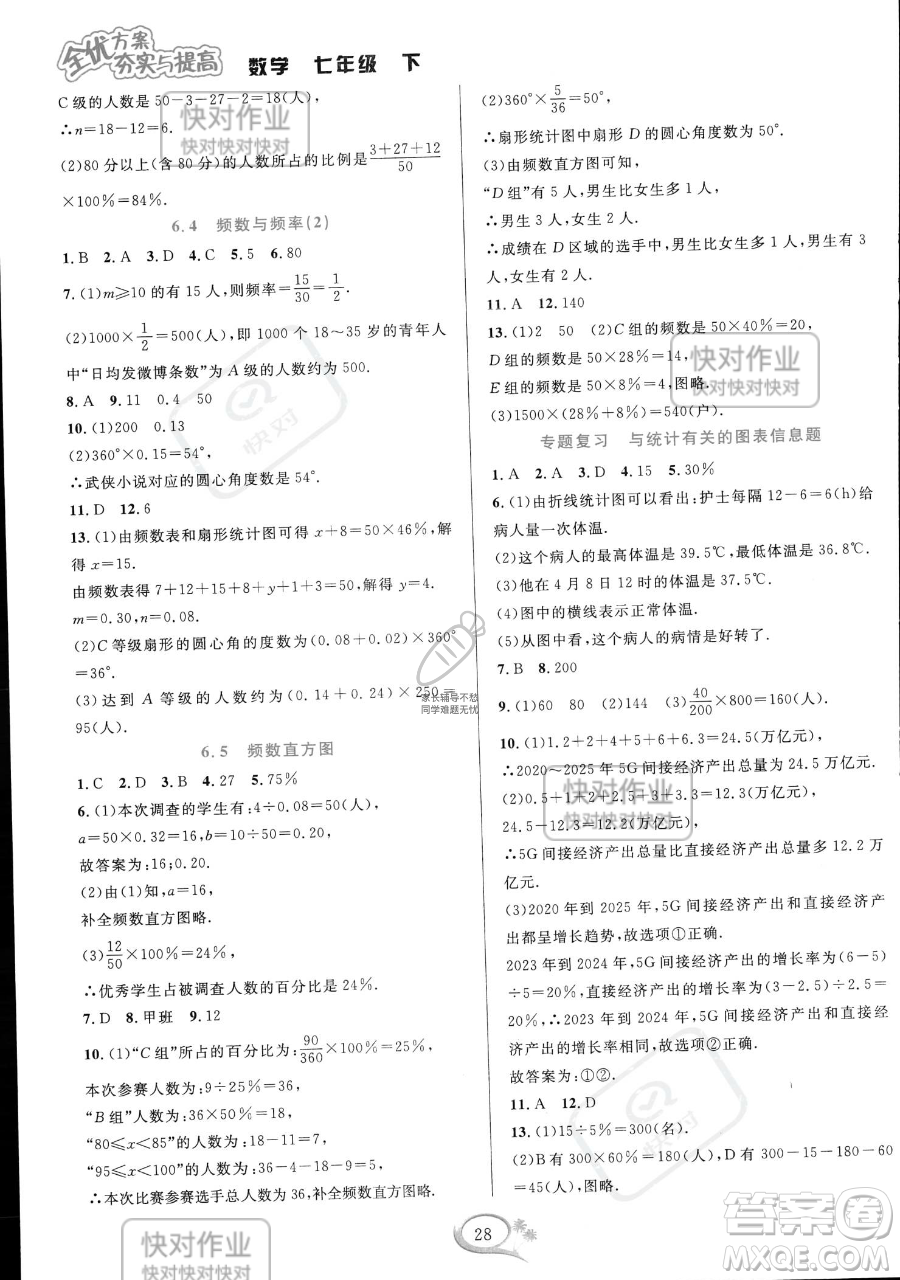 全优方案
夯实与提高 数学 七年级 下
C级的人数是50-3-27-2=18(人),
∴n=18-12=6.
(2)80分以上(含80分)的人数所占的比例是(3+27+12)/50
×100%=84%.
6.4 频数与频率(2)
1.B 2.A 3.D 4.C 5.5 6.80
7.(1)m≥10的有15人,则频率=15/30=1/2.
(2)1000×1/2=500(人),即1000个18~35岁的青年人
中“日均发微博条数”为A级的人数约为500.
8.A 9.11 0.4 50
10.(1)200 0.3
(2)360°×0.15=54°,
∴武侠小说对应的圆心角度数是54°.
11.D 12.6
13.(1)由频数表和扇形统计图可得x+8=50×46%,解
得x=15.
由频数表得7+12+15+8+4+y=50,解得y=4.
m=0.30,n=0.08.
(2)C等级扇形的圆心角的度数为(0.08+0.02)×360°
=36°.
(3)达到A等级的人数约为(0.14+0.24)×250=
95(人).
6.5 频数直方图
1.C 2.D 3.B 4.27 5.75%
6.(1)本次调查的学生有:4÷0.08=50(人),
a=50×0.32=16,b=10÷50=0.20.
故答案为:16;0.20.
(2)由(1)知,a=16,
补全频数直方图略.
(3)12/50×100%=24%,
∴优秀学生占被调查人数的百分比是24%.
7.D 8.甲班 9.12
10.(1)“C组”所占的百分比为:90/360×100%=25%,
本次参赛人数为:9÷25%=36,
“B组”人数为:36×50%=18,
“80≤x<85”的人数为:18-11=7,
“95≤x<100”的人数为:36-4-18-9=5,
∴本次比赛参赛选手总人数为36,补全频数直方图略.
(2)360°×5/36=50°,
∴扇形统计图中扇形D的圆心角度数为50°.
(3)由频数直方图可知,
“D组”有5人,男生比女生多1人,
∴男生3人,女生2人.
∴成绩在D区域的选手中,男生比女生多1人,男生有3
人,女生有2人.
11.A 12.140
13.(1)2 50 (2)C组的频数是50×40%=20,
D组的频数是50×28%=14,
E组的频数是50×8%=4,图略.
(3)1500×(28%+8%)=540(户).
专题复习 与统计有关的图表信息题
1.A 2.A 3.D 4.15 5.30%
6.(1)由折线统计图可以看出:护士每隔12-6=6(h)给
病人量一次体温.
(2)这个病人的最高体温是39.5℃,最低体温是36.8℃.
(3)他在4月8日12时的体温是37.5℃.
(4)图中的横线表示正常体温.
(5)从图中看,这个病人的病情是好转了.
7.B 8.200
9.(1)60 80 (2)144 (3)40/200×800=160(人).
10.(1)1.2+2+4+5+6+6.3=24.5(万亿元).
∴2020~2025年5G间接经济产出总量为24.5万亿元.
(2)0.5+1+2+2.5+3+3.3=12.3(万亿元),
24.5-12.3=12.2(万亿元).
∴5G间接经济产出总量比直接经济产出总量多12.2万
亿元.
(3)2020年到2025年,5G间接经济产出和直接经济产
出都呈增长趋势,故选项①正确.
2023年到2024年,5G间接经济产出的增长率为(6-5)
÷5=20%,直接经济产出的增长率为(3-2.5)÷2.5=
20%,∴2023年到2024年,5G间接经济产出和直接经济
产出的增长率相同,故选项②正确.
故答案为:①②.
11.A 12.D
13.(1)15÷5%=300(名).
(2)B有300×60%=180(人),D有300-15-180-60
=45(人),图略.
28
快对作业
快对快对快对
快对
家长辅导不愁
同学难题无忧
答案卷
MXQE.COM